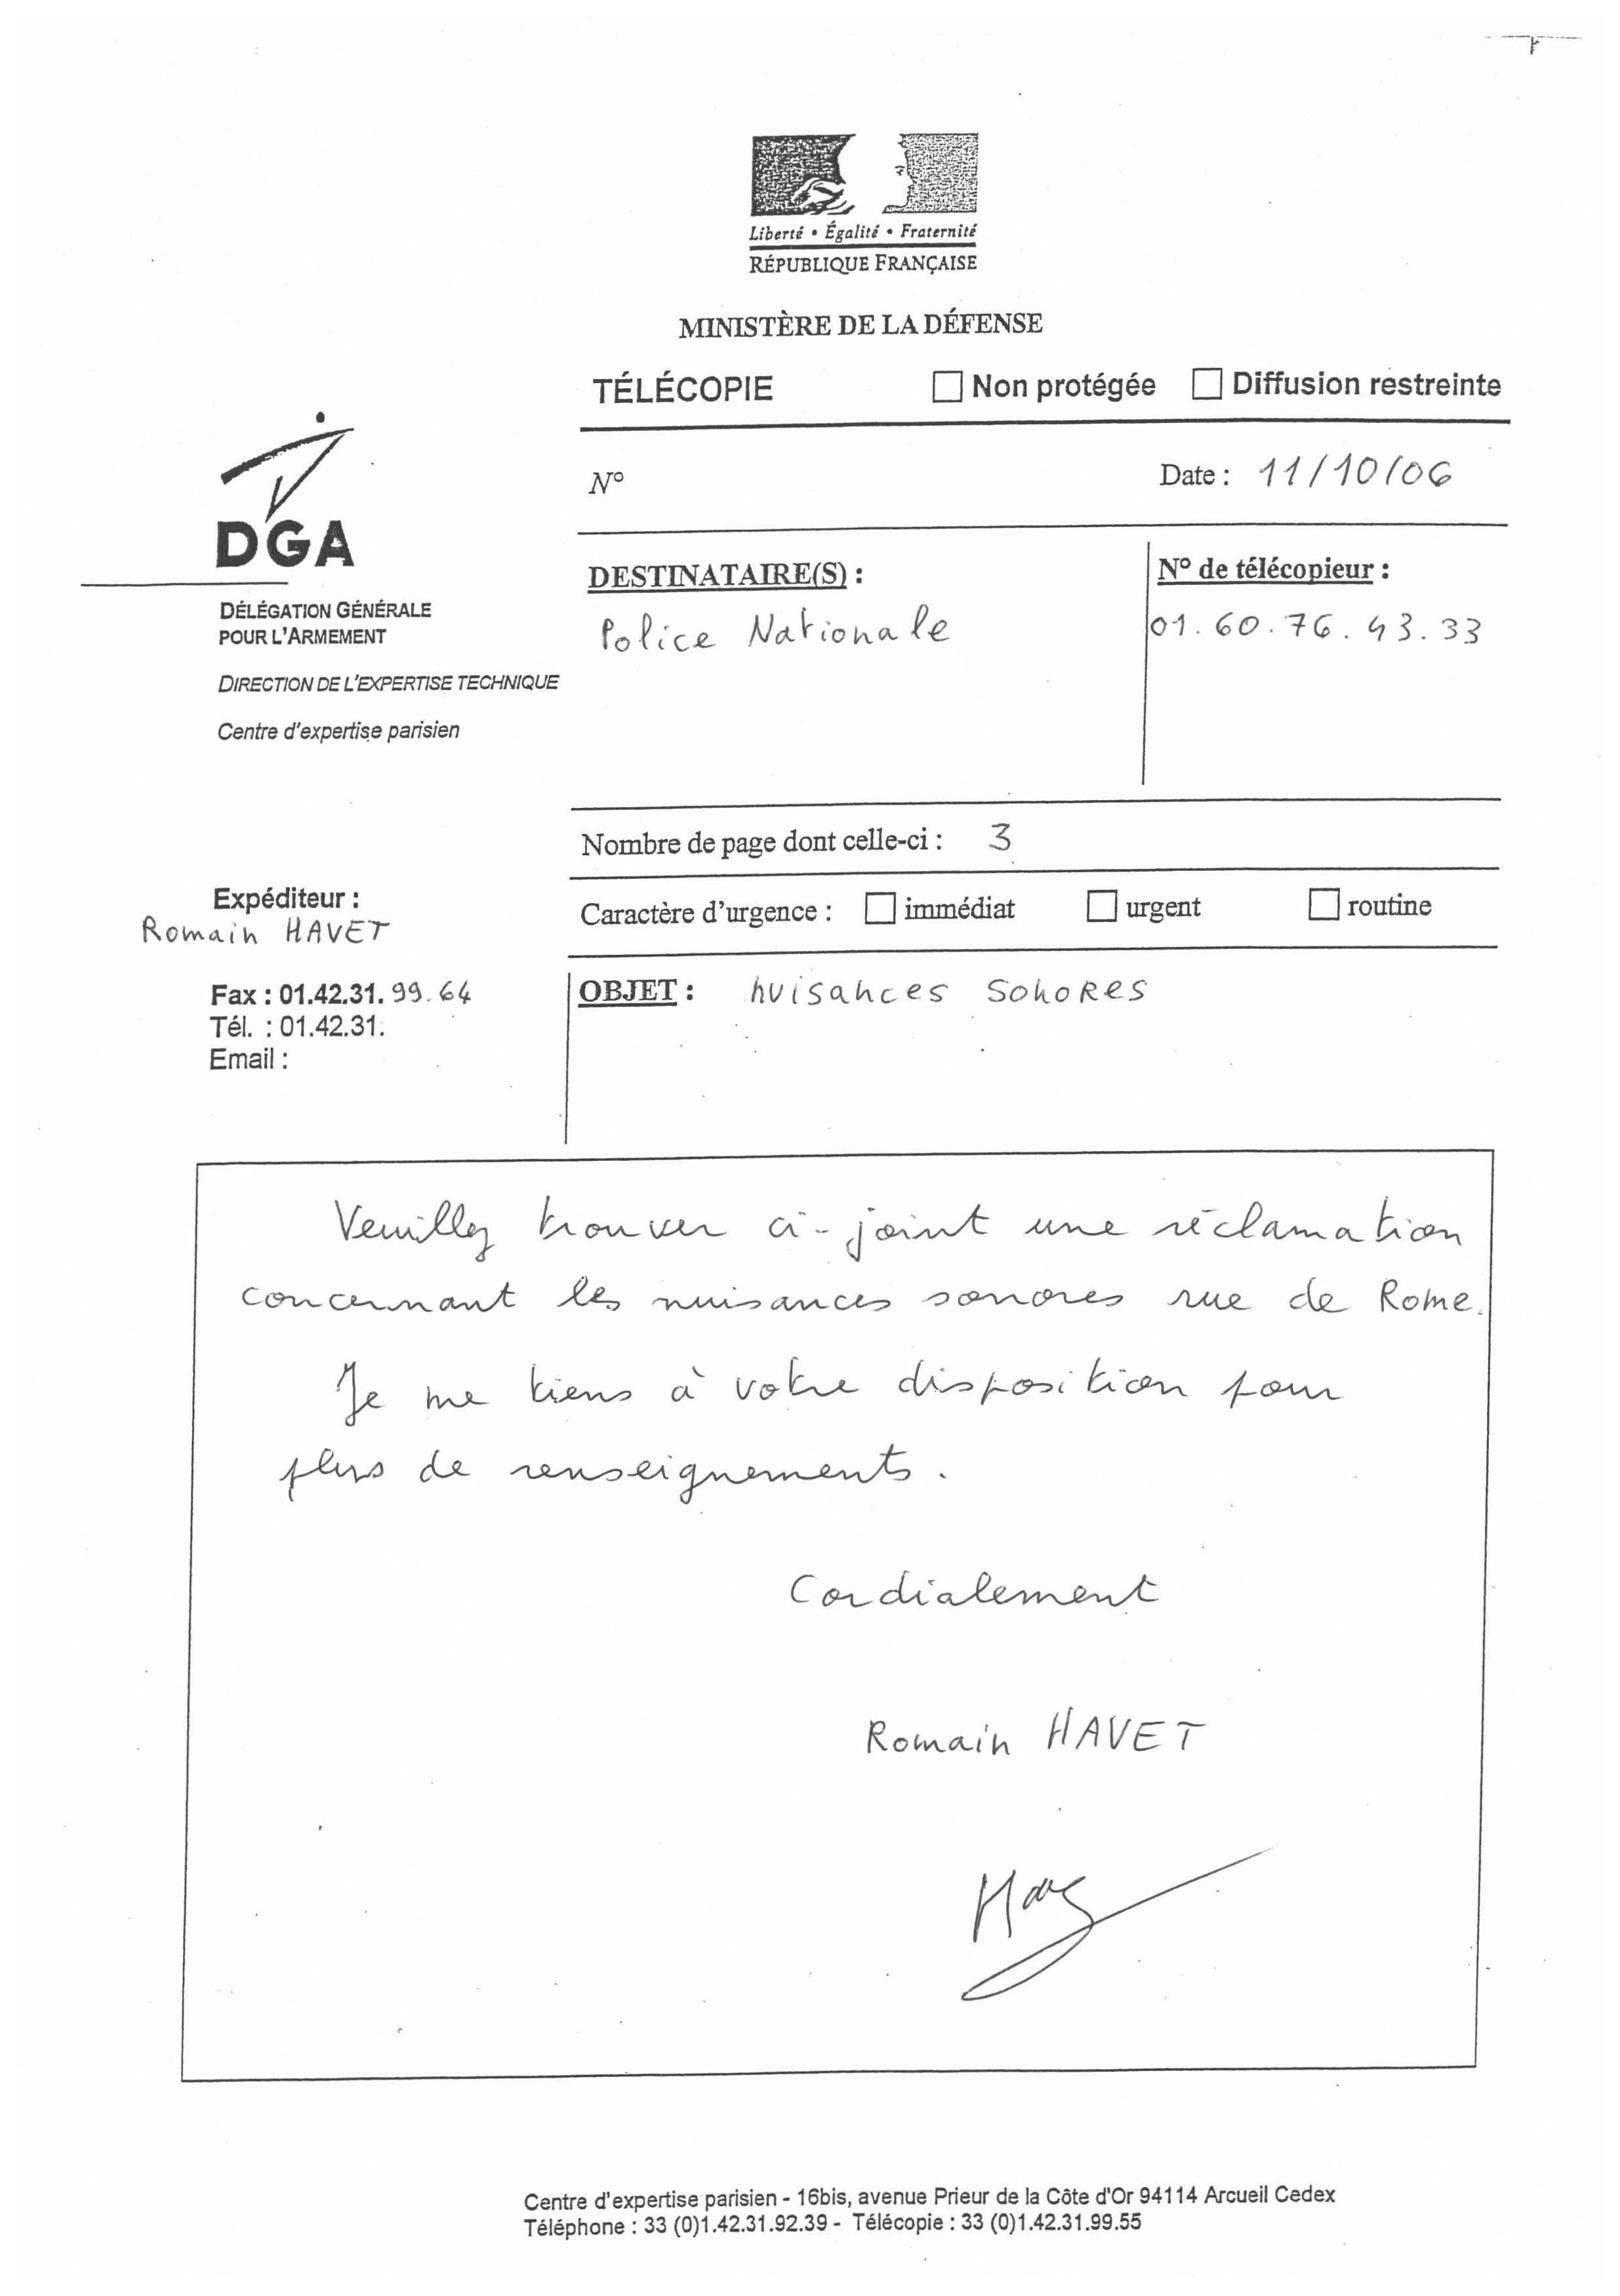 Liberté • Égalité • Fraternité
RÉPUBLIQUE FRANÇAISE
MINISTÈRE DE LA DÉFENSE
TÉLÉCOPIE ☐ Non protégée ☐ Diffusion restreinte
N° Date : 11/10/06
DGA
DÉLÉGATION GÉNÉRALE
POUR L'ARMEMENT
DIRECTION DE L'EXPERTISE TECHNIQUE
Centre d'expertise parisien
DESTINATAIRE(S) :
Police Nationale
N° de télécopieur :
01.60.76.43.33
Nombre de page dont celle-ci : 3
Expéditeur :
Romain HAVET
Caractère d'urgence : ☐ immédiat ☐ urgent ☐ routine
Fax : 01.42.31.99.64
Tél. : 01.42.31.
Email :
OBJET : nuisances sonores
Veuillez trouver ci-joint une réclamation
concernant les nuisances sonores rue de Rome.
Je me tiens à votre disposition pour
plus de renseignements.
Cordialement
Romain HAVET
Centre d'expertise parisien - 16bis, avenue Prieur de la Côte d'Or 94114 Arcueil Cedex
Téléphone : 33 (0)1.42.31.92.39 - Télécopie : 33 (0)1.42.31.99.55